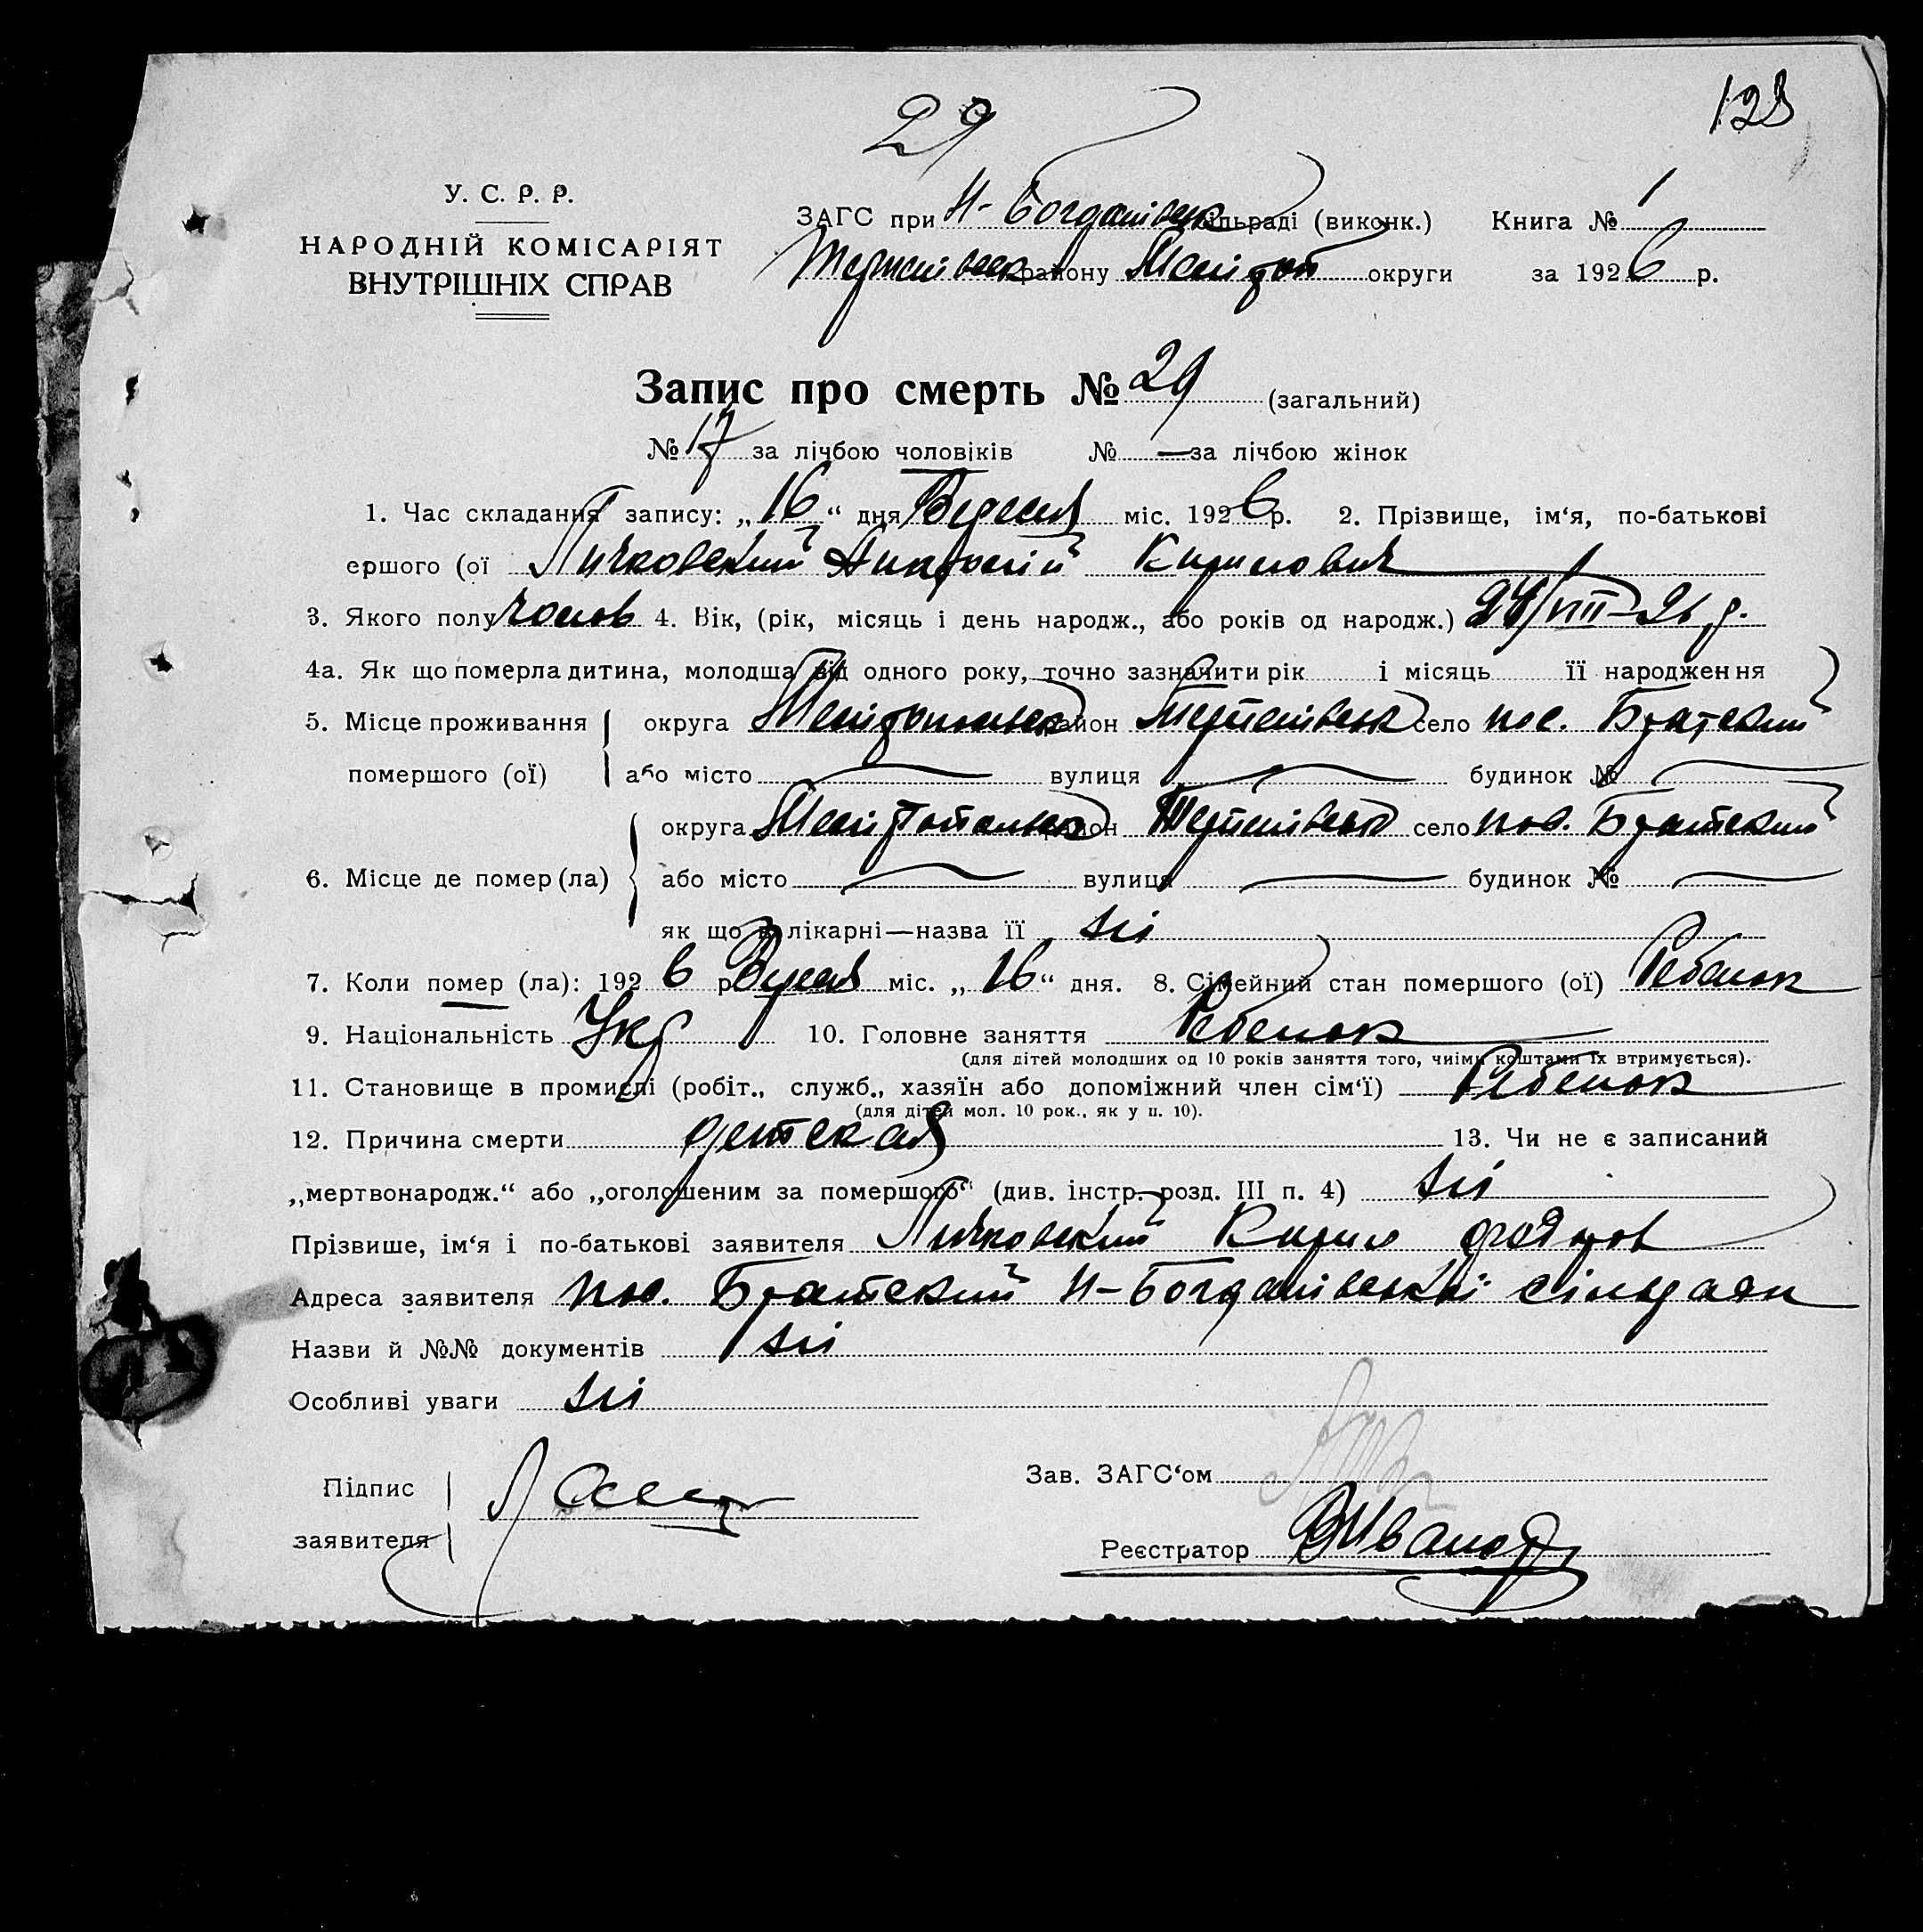 29
123
У. С. Р. Р.
НАРОДНІЙ КОМІСАРІЯТ
ВНУТРІШНІХ СПРАВ
ЗАГС при Н-Богданівськ сільраді (виконк.) Книга № 1
району Мелітоп округи за 1926 р.
Запис про смерть № 29 (загальний)
№ 17 за лічбою чоловіків № — за лічбою жінок
1. Час складання запису: „16“ дня Вересня міс. 1926 р. 2. Прізвище, ім‘я, по-батькові
ершого (ої Кирилович
3. Якого полу чолов 4. Вік, (рік, місяць і день народж., або років од народж.) 24/VIII-26 р.
4а. Як що померла дитина, молодша від одного року, точно зазначити рік і місяць її народження
5. Місце проживання округа Мелітопольськ район село пос. Братский
помершого (ої) або місто — вулиця — будинок № —
округа Мелітопольськ район село пос. Братский
6. Місце де помер (ла) або місто — вулиця — будинок № —
як що в лікарні—назва її ні
7. Коли помер (ла): 1926 р Вересня міс. „16“ дня. 8. Сімейний стан помершого (ої) Ребенок
9. Національність Укр 10. Головне заняття Ребенок
(для дітей молодших од 10 років заняття того, чиїми коштами їх втримується).
11. Становище в промислі (робіт., служб., хазяїн або допоміжний член сім‘ї) Ребенок
(для дітей мол. 10 рок., як у п. 10).
12. Причина смерти детская 13. Чи не є записаний
„мертвонародж.“ або „оголошеним за помершого“ (див. інстр. розд. III п. 4) ні
Прізвише, ім‘я і по-батькові заявителя Кирил
Адреса заявителя пос. Братский Н-Богданівської сільради
Назви й №№ документів ні
Особливі уваги ні
Підпис
заявителя
Зав. ЗАГС‘ом
Реєстратор В Иванов